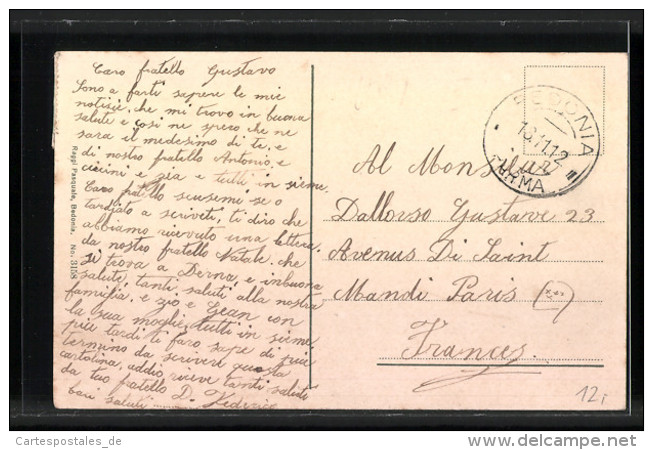 Caro fratello Gustavo
Sono a farti sapere le mie
notisie, che mi trovo in buona
salute e cosi ne spero che ne
sara il medesimo di te, e
di nostro fratello Antonio, e
ciccini e zia e tutti in sieme.
Caro fratello scusemi se o
tardato a scriveti, ti diro che
abbiamo ricevuto una lettera
da nostro fratello Natale. che
si trova a Derna, e inbuona
salute, tanti saluti alla nostra
famiglia. e zio e Gean con
la sua moglie, tutti in sieme
più tardi ti faro sape di più
termino da scrivere questa
cartolina, addio riceve tanti saluti
da tuo fratello D.
bari saluti
Raggi Pasquale, Bedonia. No. 3158
BEDONIA
PARMA
Al Monsieur
Dallorso Gustave 23
Avenus Di Saint
Mandi Paris
Frances.
12,
Cartespostales_de
www.delcampe.net